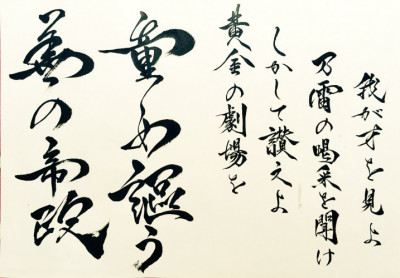 我が才を見よ
万雷の喝采を聞け
しかして讃えよ
黄金の劇場を
童女謳う
華の帝政